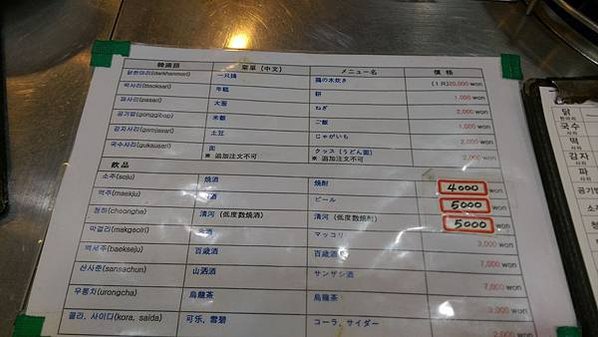 韓國語 菜單 (中文) メニュー名 価格
닭한마리(darkhanmari) 一只鶏 鶏の水炊き (1羽)20,000 won
떡사리(tteoksari) 年糕 餅 1,000 won
파사리(pasari) 大葱 ねぎ 2,000 won
공기밥(gonggibap) 米飯 ご飯 1,000 won
감자사리(gamjasari) 土豆 じゃがいも 2,000 won
국수사리(guksusari) 面 クッス (うどん面) 2,000 won
※ 追加注文不可 ※ 追加注文不可
飲品
소주(soju) 焼酒 焼酎 4000
맥주(maekju) ビール 5000
청하(cheongha) 清河 (低度数焼酒) 清河 (低度数焼酎) 5000
막걸리(makgeolri) マッコリ 3,000 won
백세주(baekseju) 百歳酒 百歳酒 7,000 won
산사춘(sansachun) 山洒酒 サンザシ酒 7,000 won
우롱차(urongcha) 烏龍茶 烏龍茶 3,000 won
콜라, 사이다(kora, saida) 可乐, 雪碧 コーラ, サイダー 2,000 won
닭
국수
사리
떡
사리
감자
사리
파
사리
공기밥